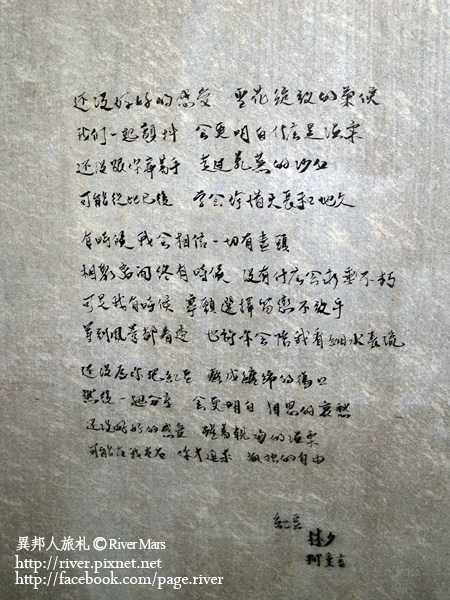 还没好好的感受 雪花綻放的氣候
我们一起顫抖 会更明白什么是温柔
还没跟你牵着手 走过荒蕪的沙丘
可能從此已後 学会珍惜天長和地久
有時候我会相信一切有盡頭
相聚离開终有時候 没有什么会永垂不朽
可是我有時候 寧願選擇留恋不放手
等到風景都看透 也許你会陪我看細水長流
还没为你把紅豆 熬成纏綿的傷口
然後一起分享 会更明白 相思的哀愁
还没好好的感受 醒着親吻的温柔
可能在我左右 你才追求 孤独的自由
紅豆
林夕
柳重言
異邦人旅札 © River Mars
http://river.pixnet.net
http://facebook.com/page.river